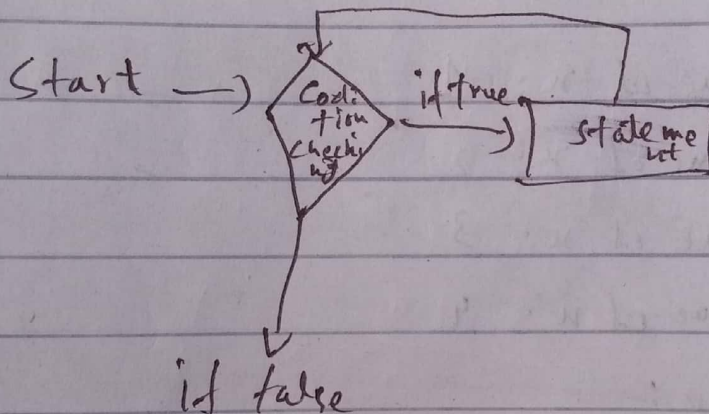 Start
Codi
tion
Checki
ng
if true
stateme
nt
if false